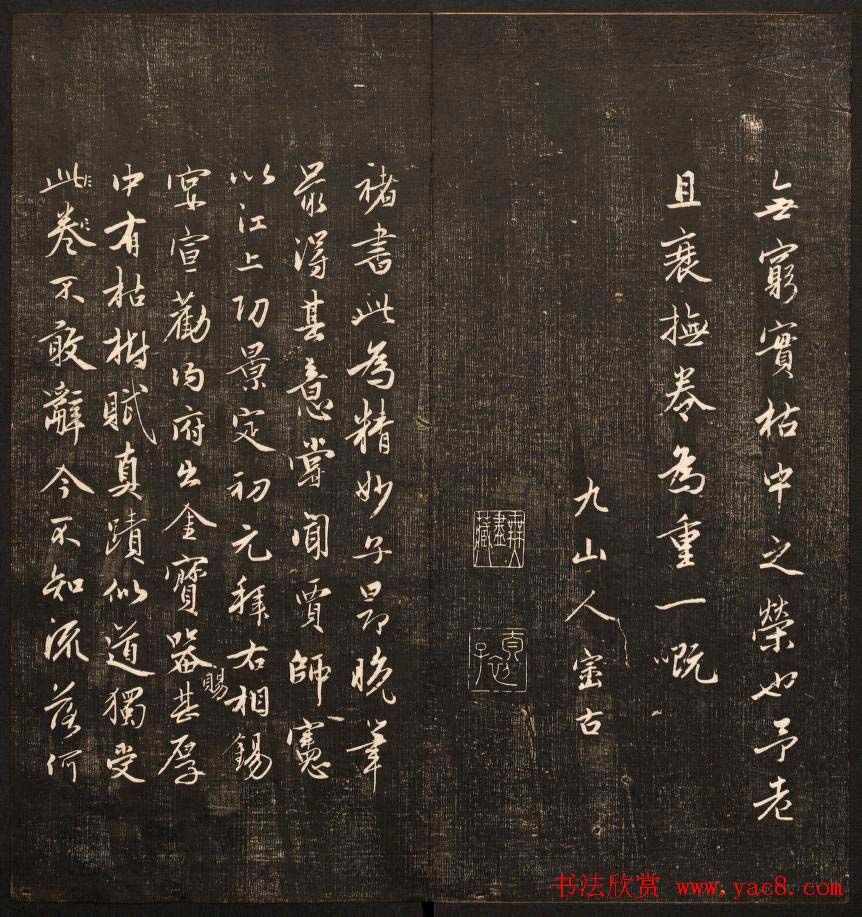 無窮實枯中之榮也予老
且衰撫卷為重一嘅
九山人密古
褚書此為精妙子昂晚筆
最得其意嘗聞賈師憲
以江上功景定初元拜右相錫
宴宣勸内府出金寶器賜甚厚
中有枯樹賦真蹟似道獨受
此卷不敢辭今不知流落何
書法欣赏 www.yac8.com